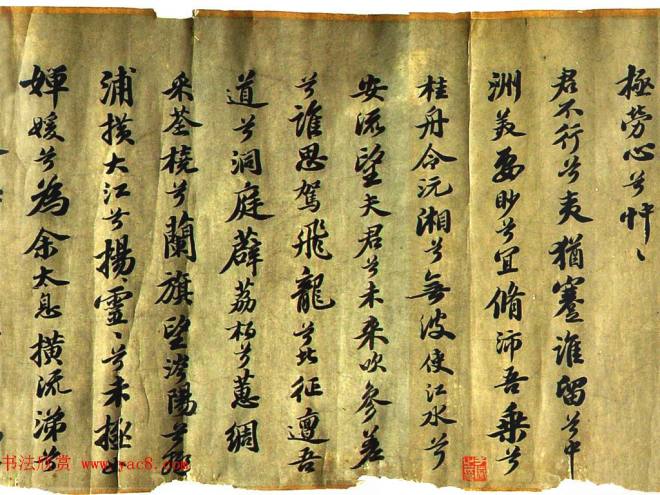 極勞心兮忡〻
君不行兮夷猶蹇誰留兮中
洲美要眇兮宜脩沛吾乘兮
桂舟令沅湘兮無波使江水兮
安流望夫君兮未来吹參差
兮誰思駕飛龍兮北征邅吾
道兮洞庭薜荔柏兮蕙綢
采荃橈兮蘭旗望涔陽兮極
浦横大江兮揚靈〻兮未極
嬋媛兮為余太息橫流涕兮
书法欣赏 www.yac8.com